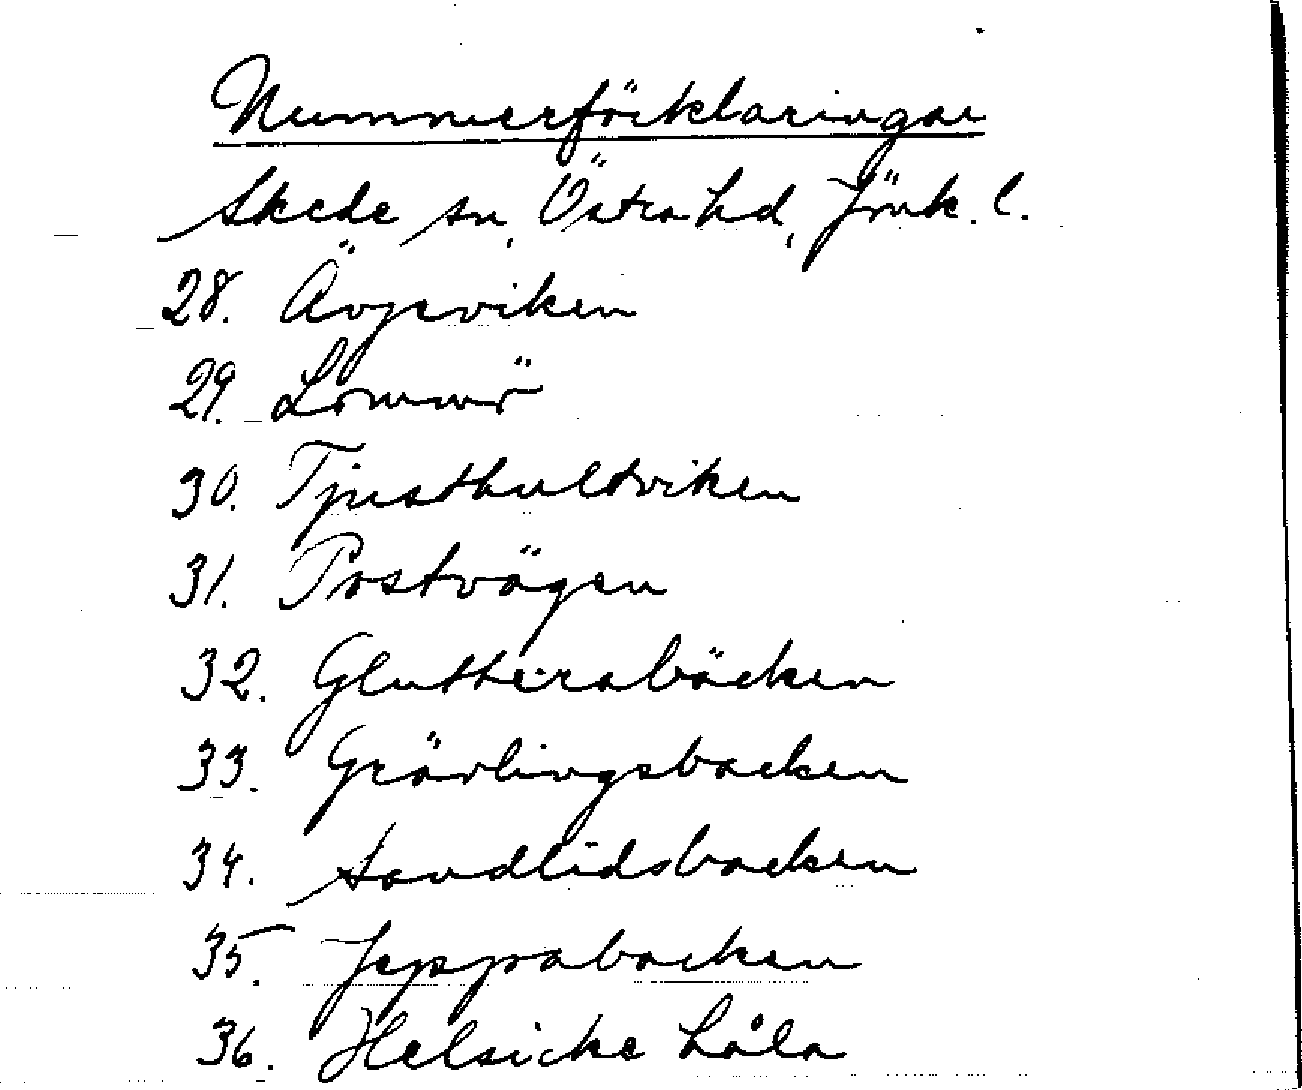 Nummerförklaringar
Skede sn, Östra hd, Jönk. l.
28. Ävjeviken
29. Lommö
30. Tjusthultviken
31. Postvägen
32. Glutterabäcken
33. Grävlingsbacken
34. Sandlidsbacken
35. Jeppabacken
36. Helsicke håla